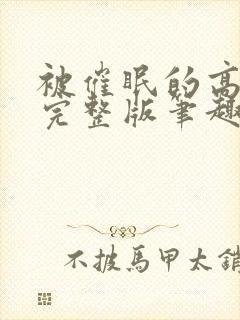 被催眠的高
完整版笔趣
不披馬甲太銷